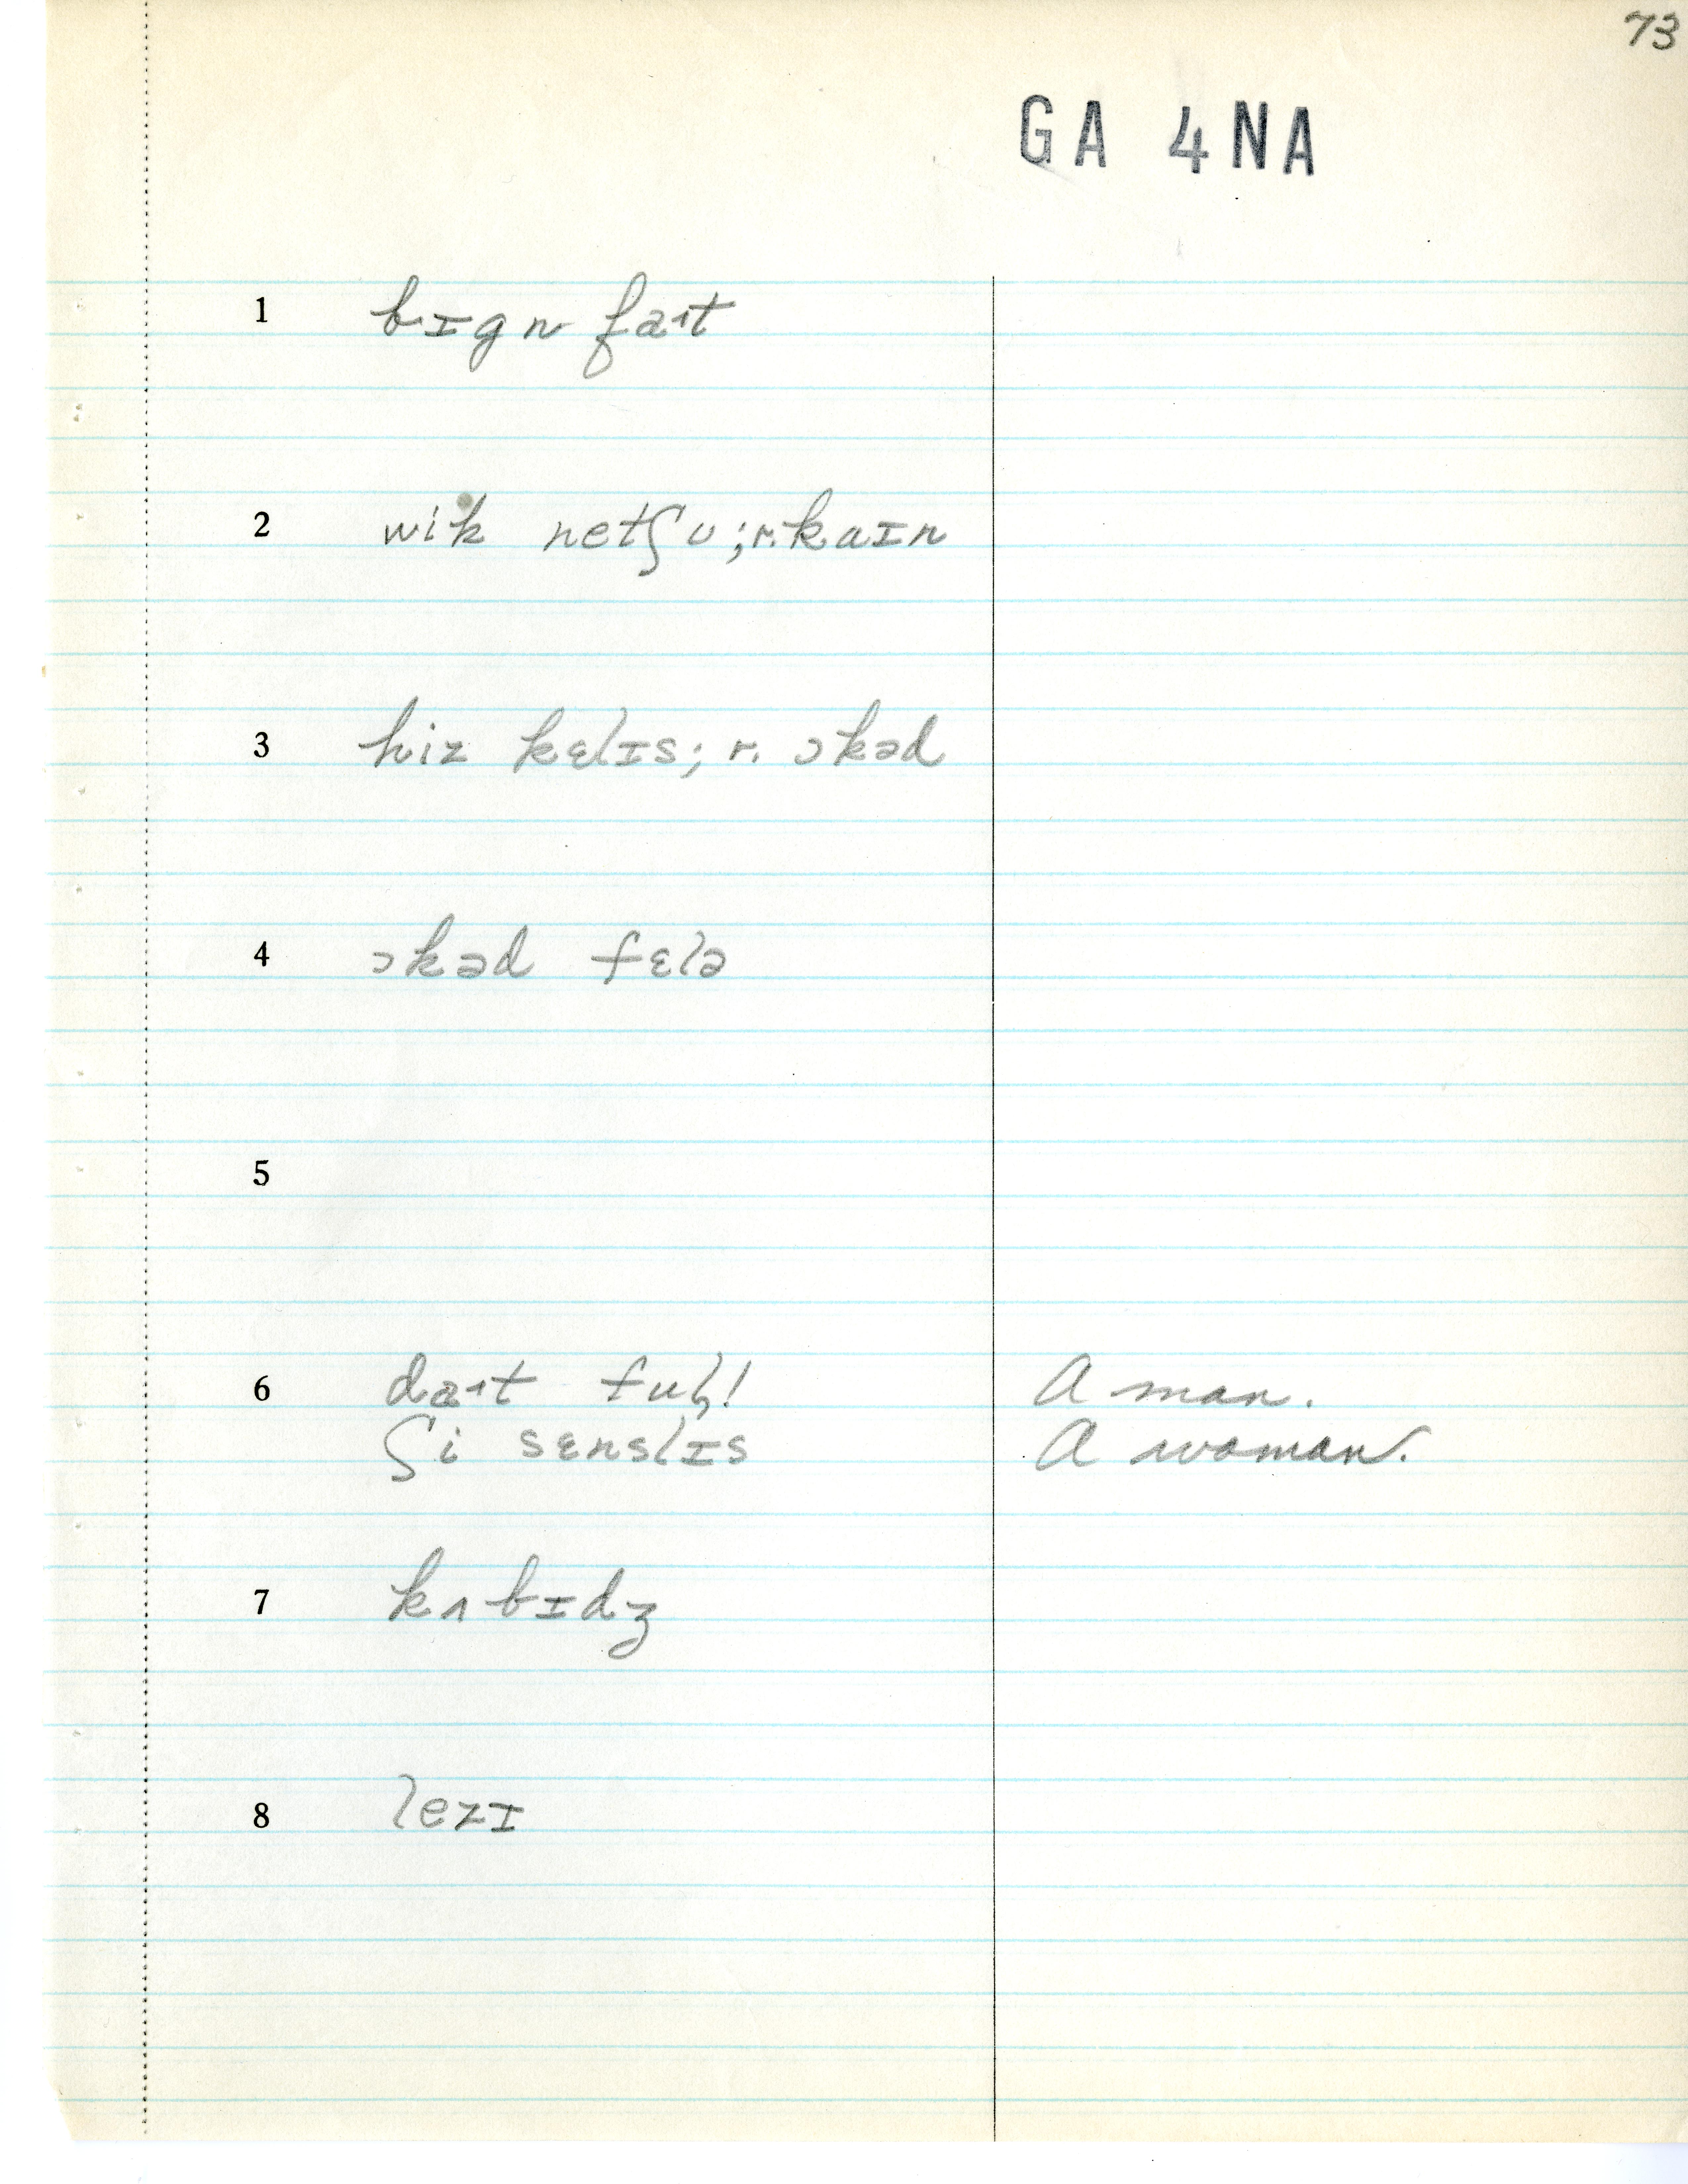 73
GA 4NA
1 bɪg n faɪt
2 wik netʃʊ; r. kaɪn
3 hiz kɛlɪs; r. ɔkəd
4 ɔkəd fɛlə
5
6 daɪt ful! A man.
ʃi sɛnslɪs A woman.
7 kʌbɪdʒ
8 lezɪ